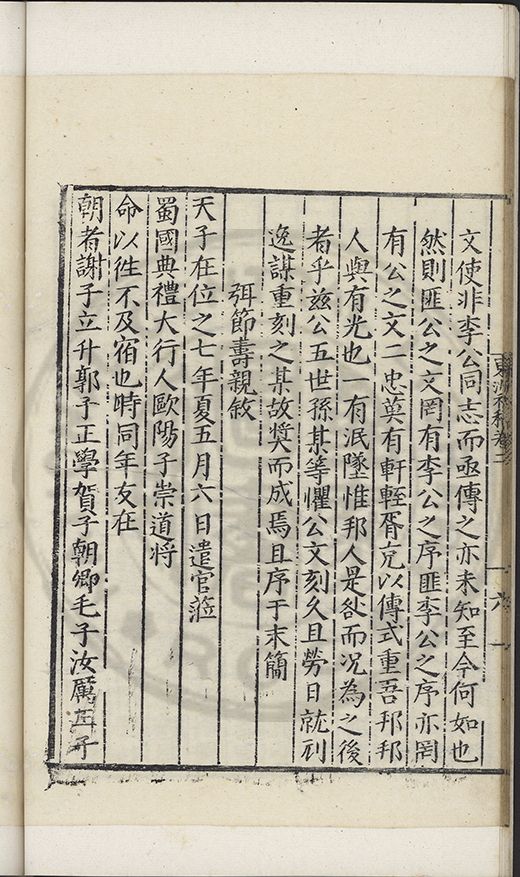 文使非李公同志而亟傳之亦未知至今何如也
然則匪公之文罔有李公之序匪李公之序亦罔
有公之文二忠莫有軒輊胥克以傳式重吾邦邦
人與有光也一有泯墜惟邦人是咎而况為之後
者乎兹公五世孫某等懼公文刻久且勞日就刓
逸謀重刻之某故奬而成焉且序于末簡
弭節壽親敘
天子在位之七年夏五月六日遣官蒞
蜀國典禮大行人歐陽子崇道將
命以徃不及宿也時同年友在
朝者謝子立升郭子正學賀子朝卿毛子汝厲王子